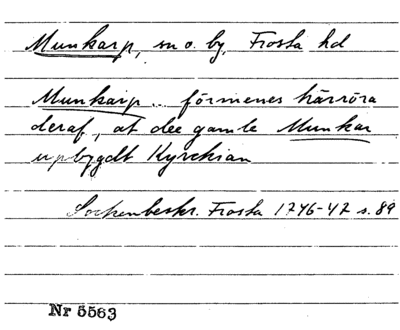 Munkarp, sn o. by, Frosta hd
Munkarp .. förmenes härröra
deraf, at dee gamle Munkar
upbygdt Kyrckian
Sockenbeskr. Frosta 1746-47 s. 89
Nr 5563